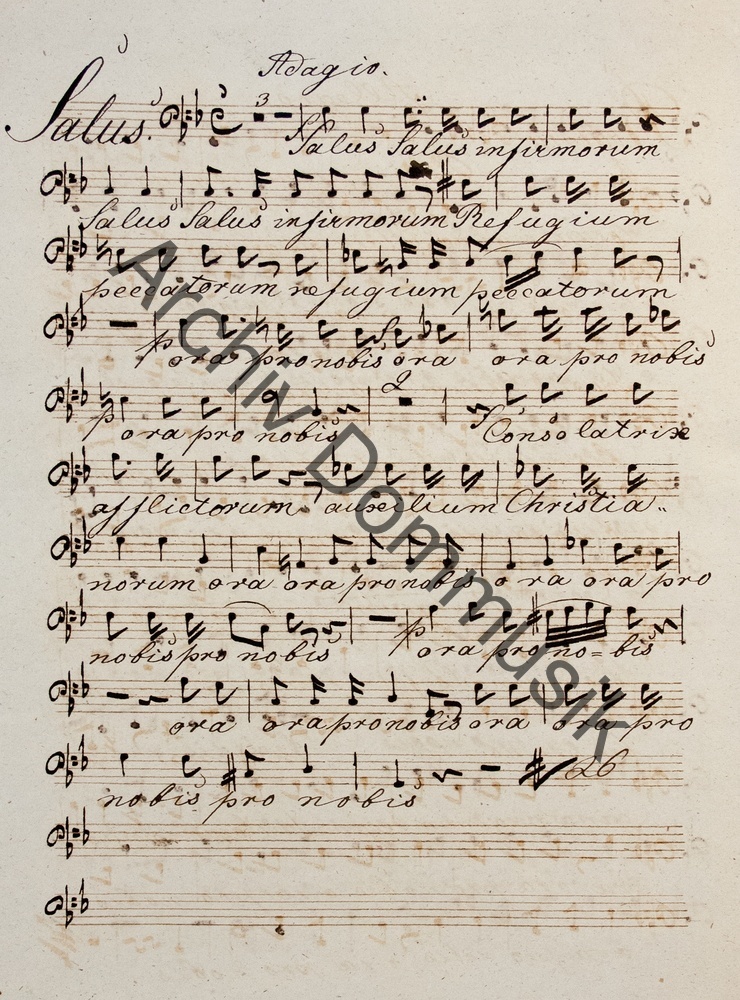 Adagio.
Salus.
3
Salus Salus infirmorum
Salus Salus infirmorum Refugium
peccatorum refugium peccatorum
p ora pronobis ora ora pro nobis
2
p ora pro nobis Consolatrix
afflictorum auxilium Christia„
norum ora ora pronobis ora ora pro
nobis pro nobis p ora pro no=bis
ora ora pronobis ora ora pro
26
nobis pro nobis
Archiv Dommusik